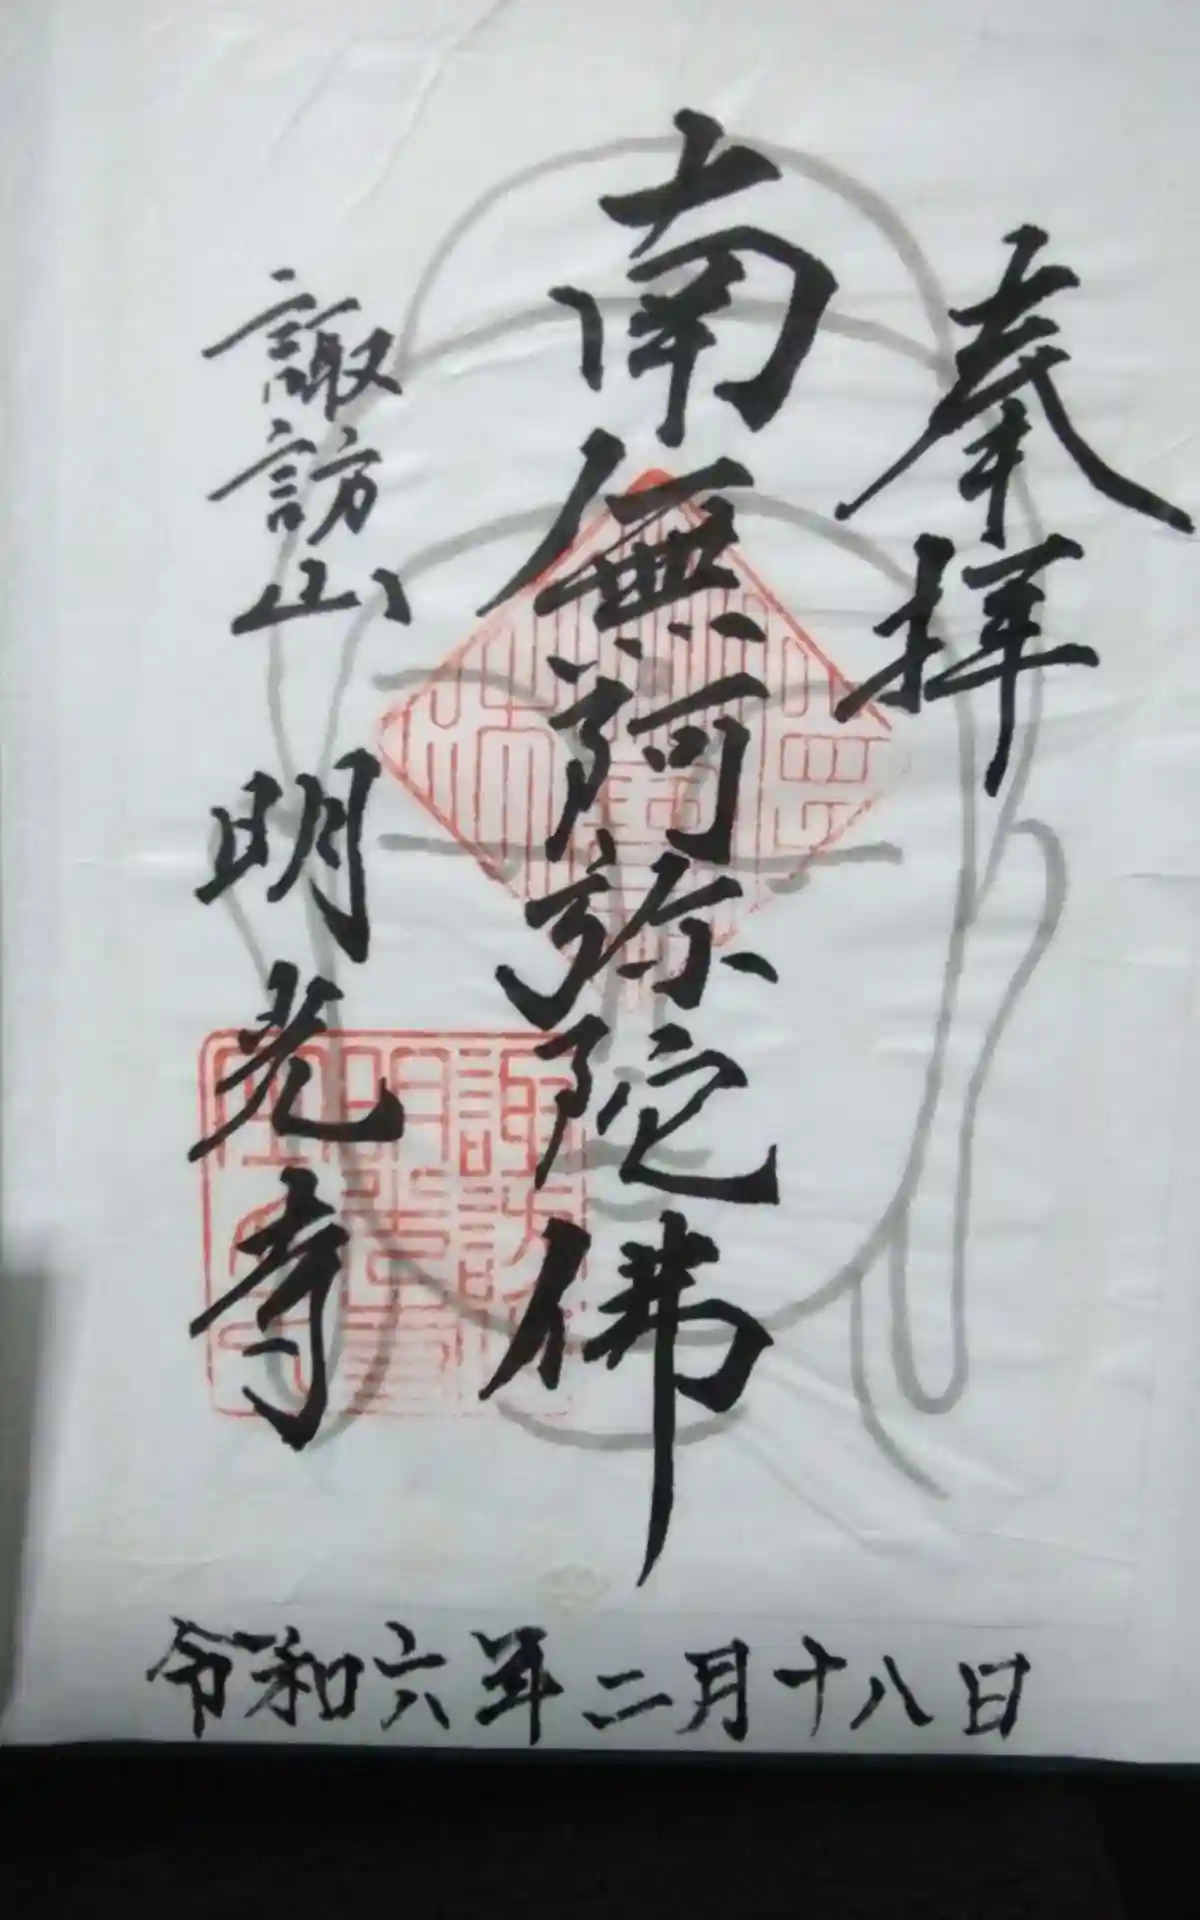 奉拝
南無阿弥陀佛
諏訪山
明光寺
令和六年二月十八日